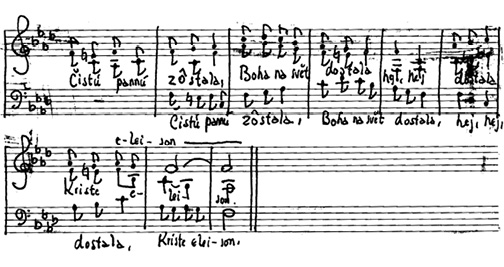 Čistú pannú zôstala, Boha na svět dostala hej, hej dostala
Čistú pannú zôstala, Boha na svět dostala, hej, hej,
e-lei-son
Kriste e-lei son.
dostala, Kriste elei-son.